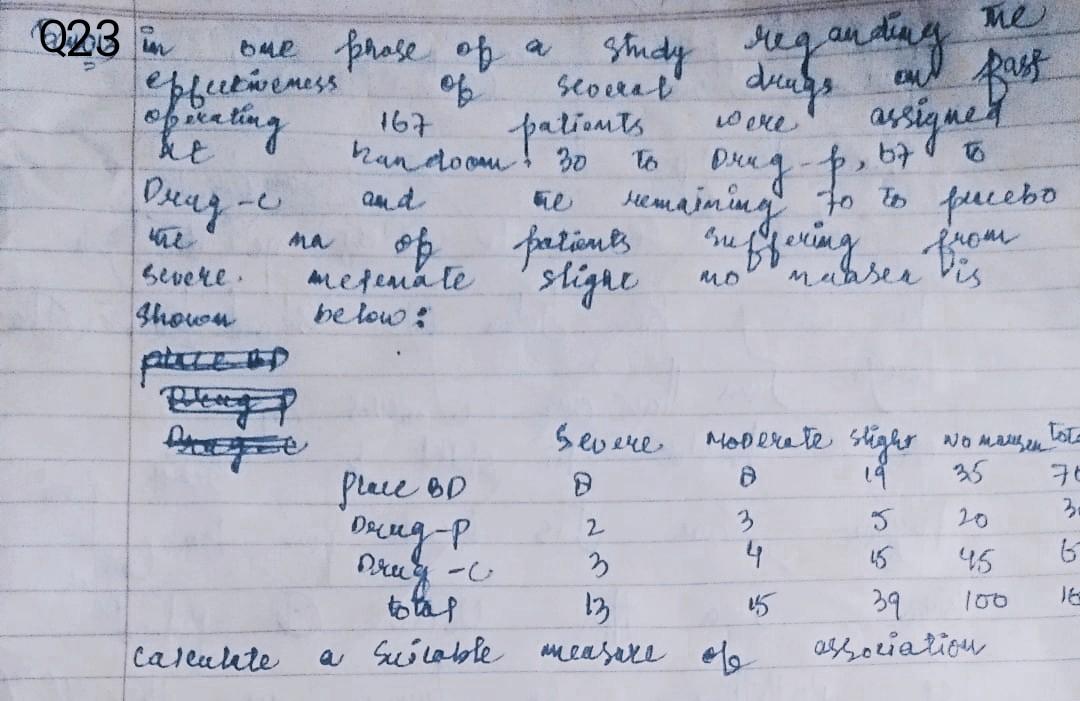 Q23
in one phase of a study reganding the
effectiveness of several drugs on past
operating 167 patients were assigned
at Randoom: 30 to Drug-p, 67 to
Drug-c and the remaining 70 to pacebo
the no of patients suffering from
severe. moterate slight no nausea is
shown below:
place BD
Drug p
Drug-c
Severe Moderate slight No nausea tota
place BD 8 8 19 35 70
Drug-p 2 3 5 20 30
Drug-c 3 4 15 45 6
total 13 15 39 100 16
calculate a Suitable measure of association